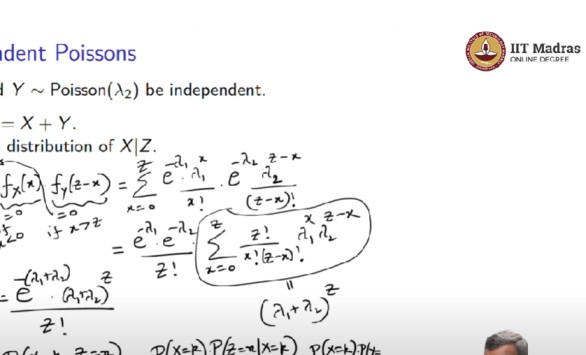 dent Poissons
IIT Madras
ONLINE DEGREE
Y ~ Poisson(λ₂) be independent.
= X + Y.
distribution of X|Z.
f_X(x) f_Y(z-x) = Σ_{x=0}^{z} e^{-λ₁} λ₁^x / x! · e^{-λ₂} λ₂^{z-x} / (z-x)!
=0 =0
x<0 if x>z
= e^{-λ₁} · e^{-λ₂} / z! Σ_{x=0}^{z} z! / x!(z-x)! λ₁^x λ₂^{z-x}
= e^{-(λ₁+λ₂)} · (λ₁+λ₂)^z / z!
(λ₁+λ₂)^z
P(X=k).P(Z=n|X=k) P(X=k).P(